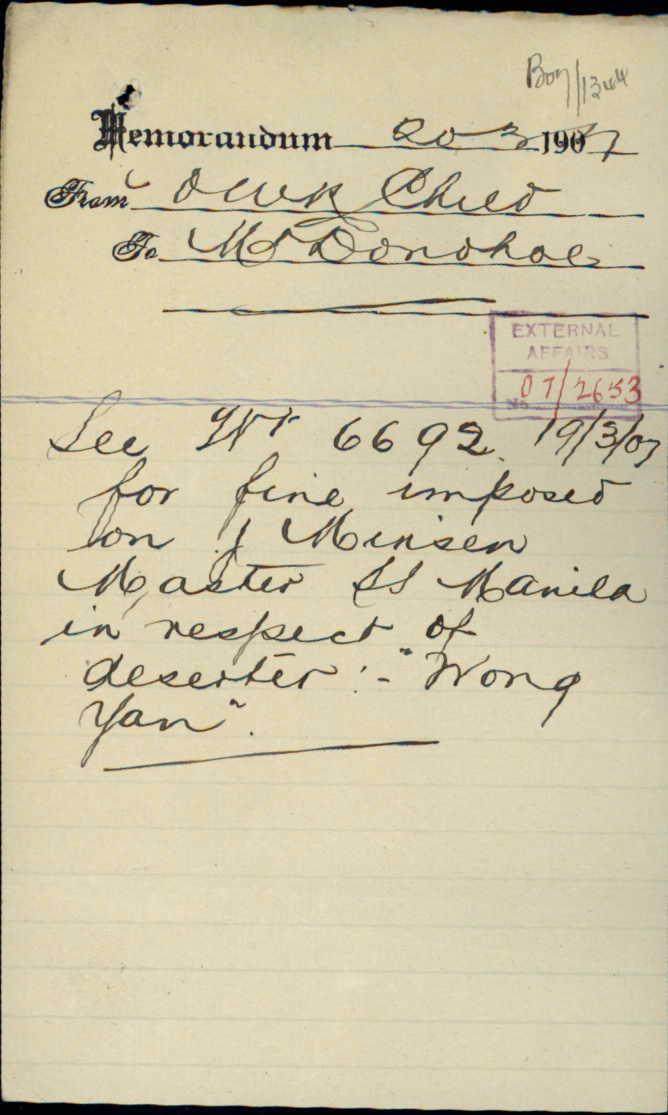 Boy/1344
Memorandum 20-3-1907
From O W R Child
To Mr Donohoe
EXTERNAL
AFFAIRS
No 07/2653
See Wt 6692. 19/3/07
for fine imposed
on J Minsen
Master SS Manila
in respect of
deserter :- "Wong
Yan".